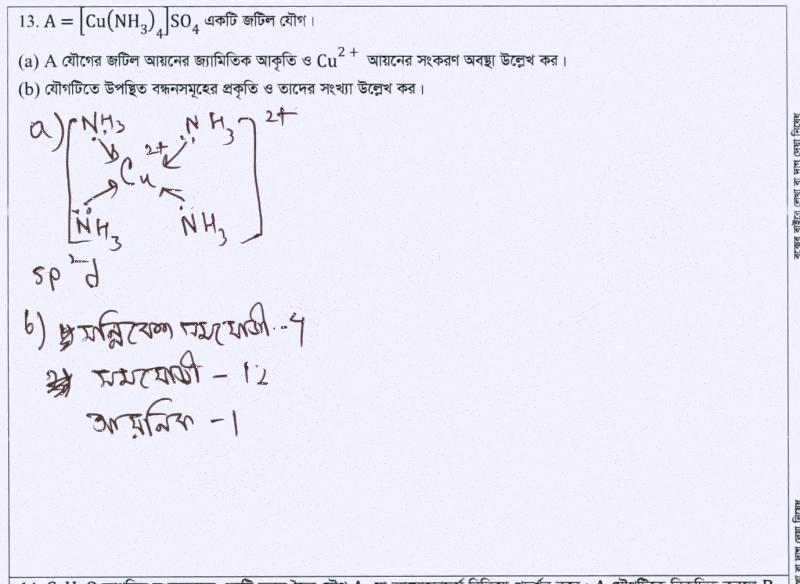 13. A = [Cu(NH₃)₄]SO₄ একটি জটিল যৌগ।
(a) A যৌগের জটিল আয়নের জ্যামিতিক আকৃতি ও Cu²⁺ আয়নের সংকরণ অবস্থা উল্লেখ কর।
(b) যৌগটিতে উপস্থিত বন্ধনসমূহের প্রকৃতি ও তাদের সংখ্যা উল্লেখ কর।
a) [NH₃ NH₃]²⁺
Cu²⁺
NH₃ NH₃
sp²d
b) সন্নিবেশ সমযোজী - 4
সমযোজী - 12
আয়নিক - 1